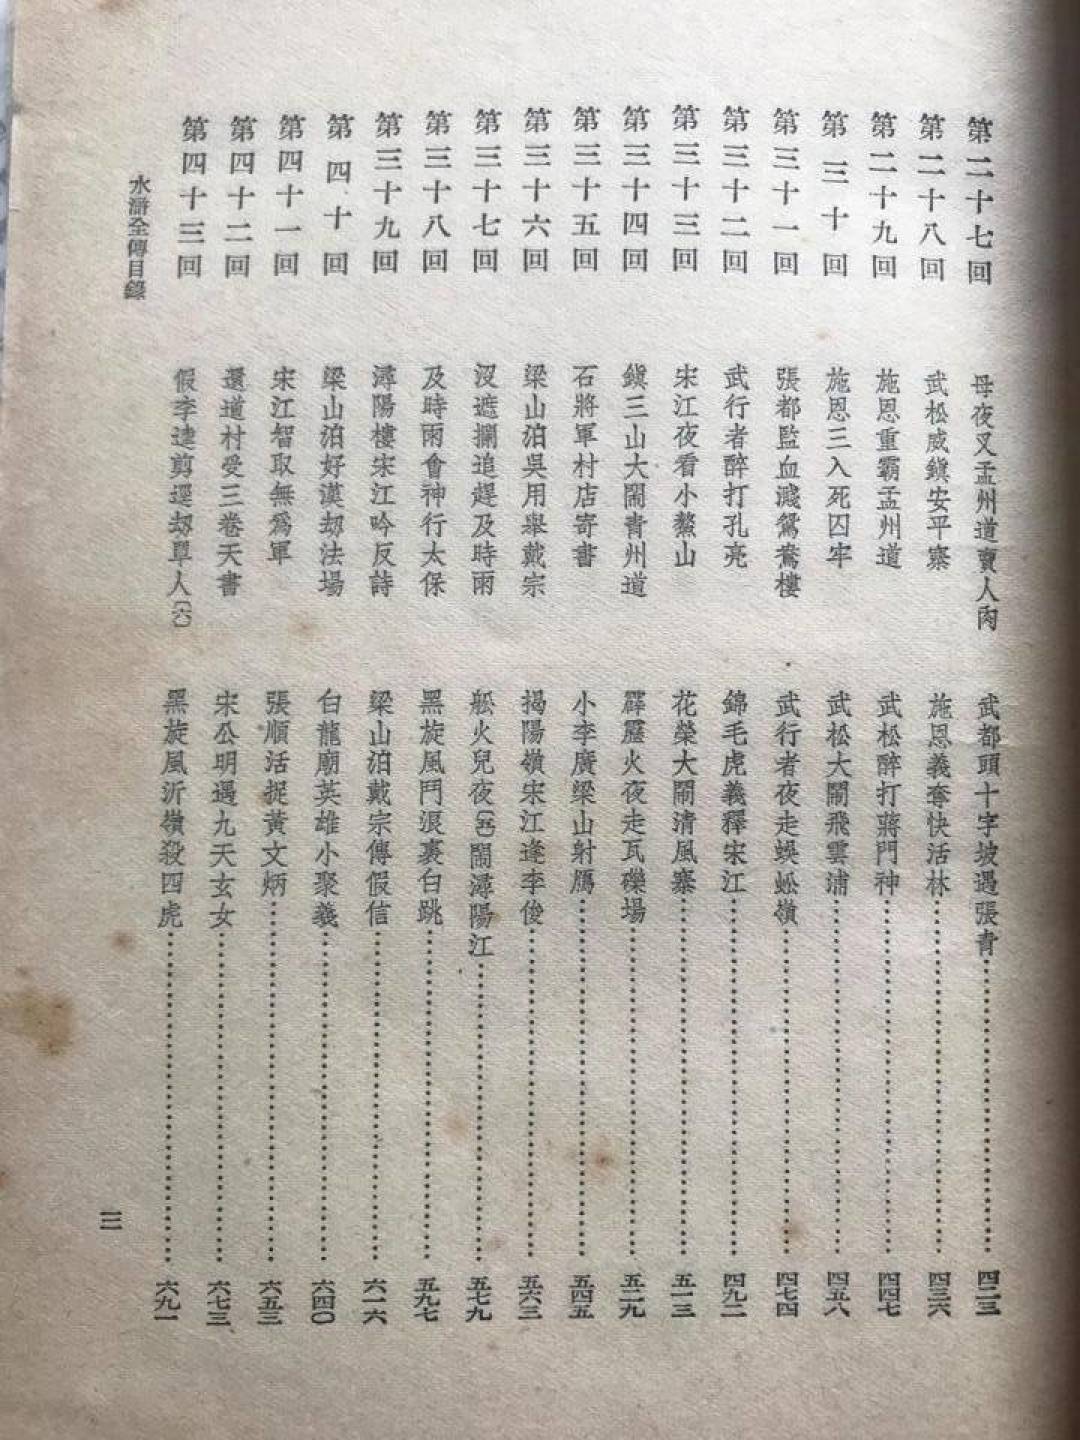 第二十七回 母夜叉孟州道賣人肉 武都頭十字坡遇張青 四二三
第二十八回 武松威鎭安平寨 施恩義奪快活林 四三六
第二十九回 施恩重霸孟州道 武松醉打蔣門神 四四七
第三十回 施恩三入死囚牢 武松大鬧飛雲浦 四五八
第三十一回 張都監血濺鴛鴦樓 武行者夜走蜈蚣嶺 四七四
第三十二回 武行者醉打孔亮 錦毛虎義釋宋江 四九二
第三十三回 宋江夜看小鰲山 花榮大鬧清風寨 五一三
第三十四回 鎭三山大鬧青州道 霹靂火夜走瓦礫場 五二九
第三十五回 石將軍村店寄書 小李廣梁山射鴈 五四五
第三十六回 梁山泊吳用舉戴宗 揭陽嶺宋江逢李俊 五六三
第三十七回 沒遮攔追趕及時雨 船火兒夜〔五〕鬧潯陽江 五七九
第三十八回 及時雨會神行太保 黑旋風鬥浪裏白跳 五九七
第三十九回 潯陽樓宋江吟反詩 梁山泊戴宗傳假信 六一六
第四十回 梁山泊好漢刼法場 白龍廟英雄小聚義 六四〇
第四十一回 宋江智取無爲軍 張順活捉黃文炳 六五三
第四十二回 還道村受三卷天書 宋公明遇九天玄女 六七三
第四十三回 假李逵剪逕刼單人〔六〕 黑旋風沂嶺殺四虎 六九一
水滸全傳目錄
三